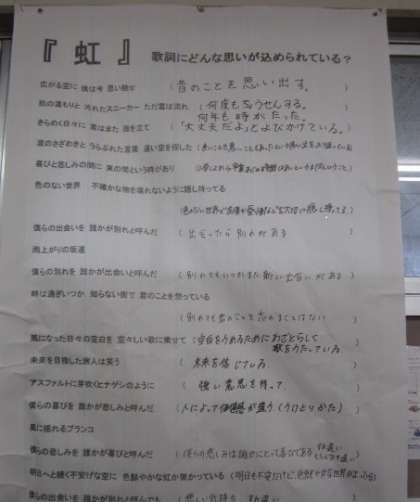 『 虹 』 歌詞にどんな思いが込められている?
広がる空に 僕は今 思い馳せ (昔のことを思い出す。)
肌の温もりと 汚れたスニーカー ただ雲は流れ (何度もちょうせんする。
何年も時がたった。)
きらめく日々に 君はまた 指を立て (「大丈夫だよ」とよびかけている。)
波のざわめきと うらぶれた言葉 遠い空を探した
喜びと悲しみの間に 束の間という時があり
色のない世界 不確かな物を壊れないように隠し持ってる
僕らの出会いを 誰かが別れと呼んだ (出会ったら別れがある)
雨上がりの坂道
僕らの別れを 誰かが出会いと呼んだ (別れてもいつかまた新しい出会いがある)
時は過ぎいつか 知らない街で 君のことを想っている
(別れても君のことを忘れることはない)
風になった日々の空白を 空々しい歌に乗せて (空白をうめるためにわざとらしく
歌をうたっている)
未来を目指した旅人は笑う (未来を信じている)
アスファルトに芽吹くヒナゲシのように (強い意思を持って)
僕らの喜びを 誰かが悲しみと呼んだ (人によって価値感が違う(うけとりかた)
風に揺れるブランコ
僕らの悲しみを 誰かが喜びと呼んだ (僕らの悲しみは誰かにとって喜びである
明日へと続く不安げな空に 色鮮やかな虹が架かっている
僕らの出会いを 誰かが別れでも